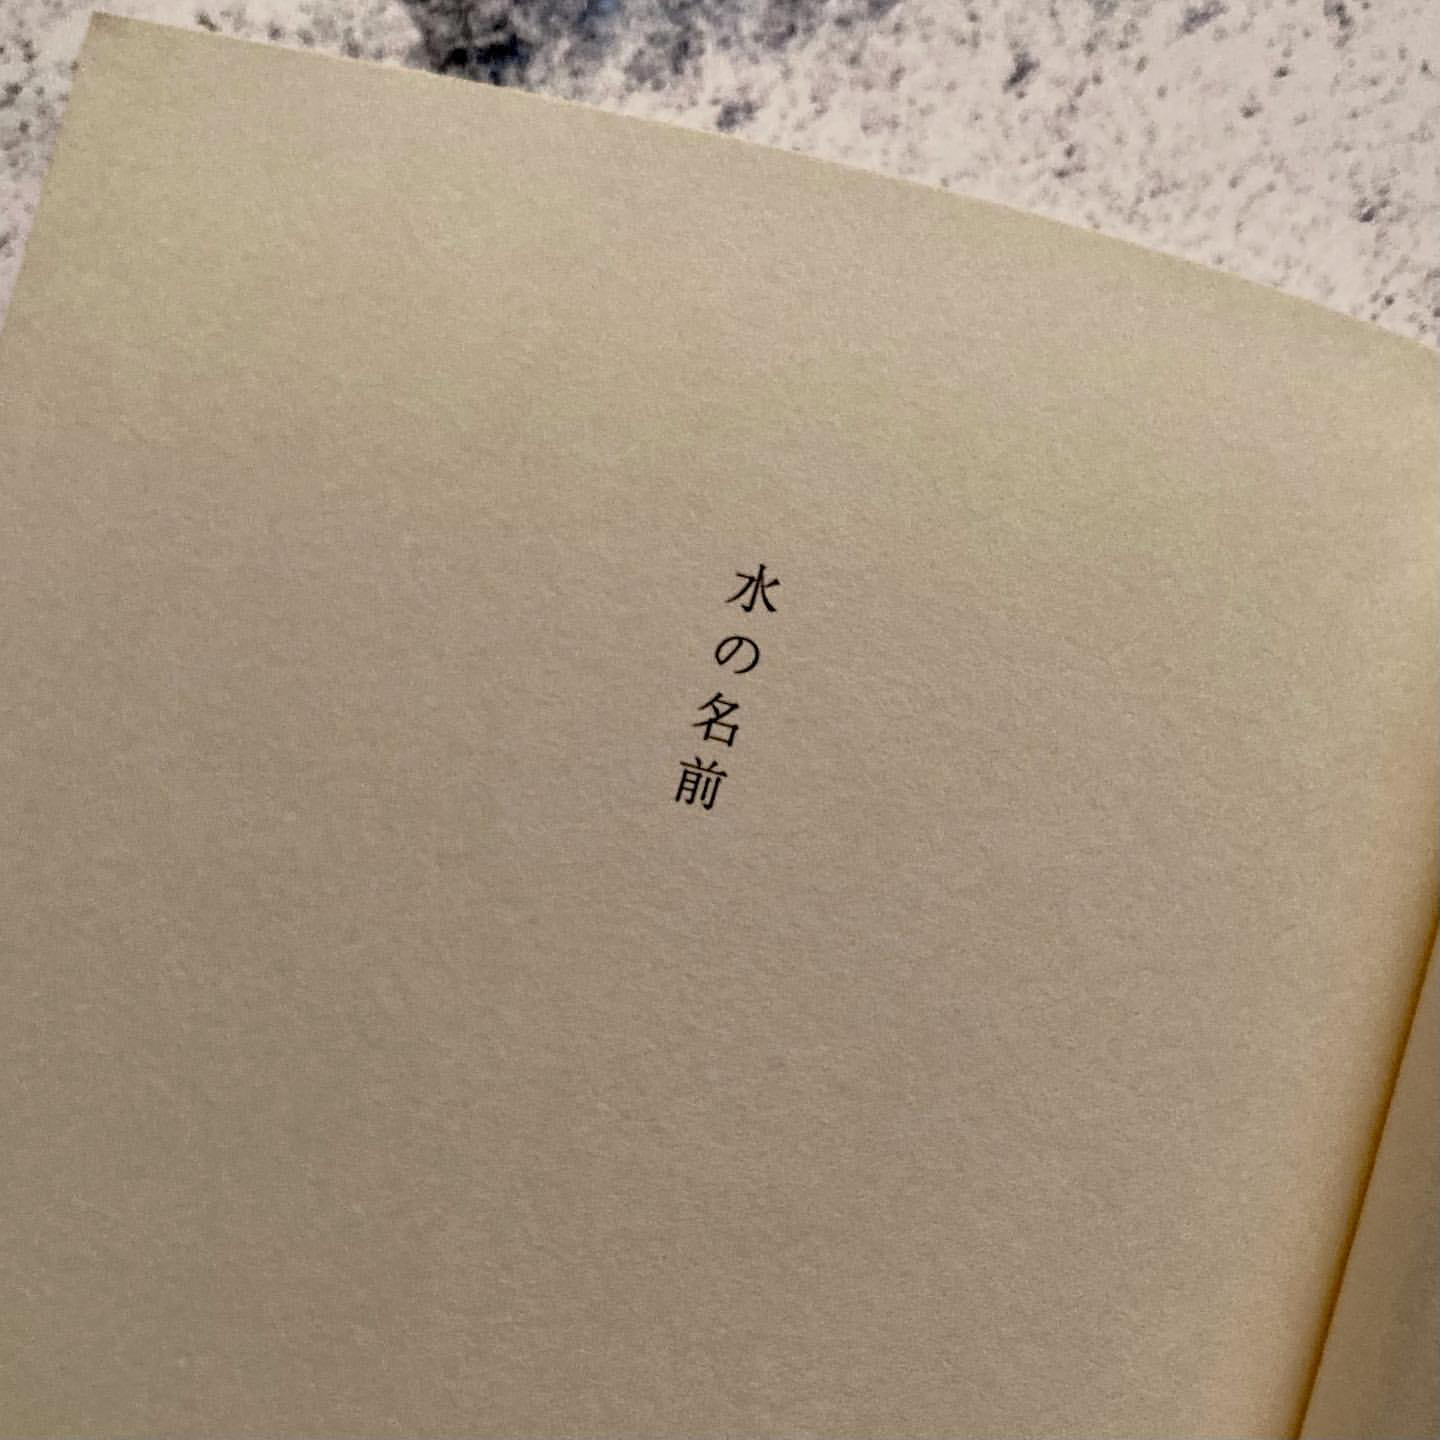 水の名前